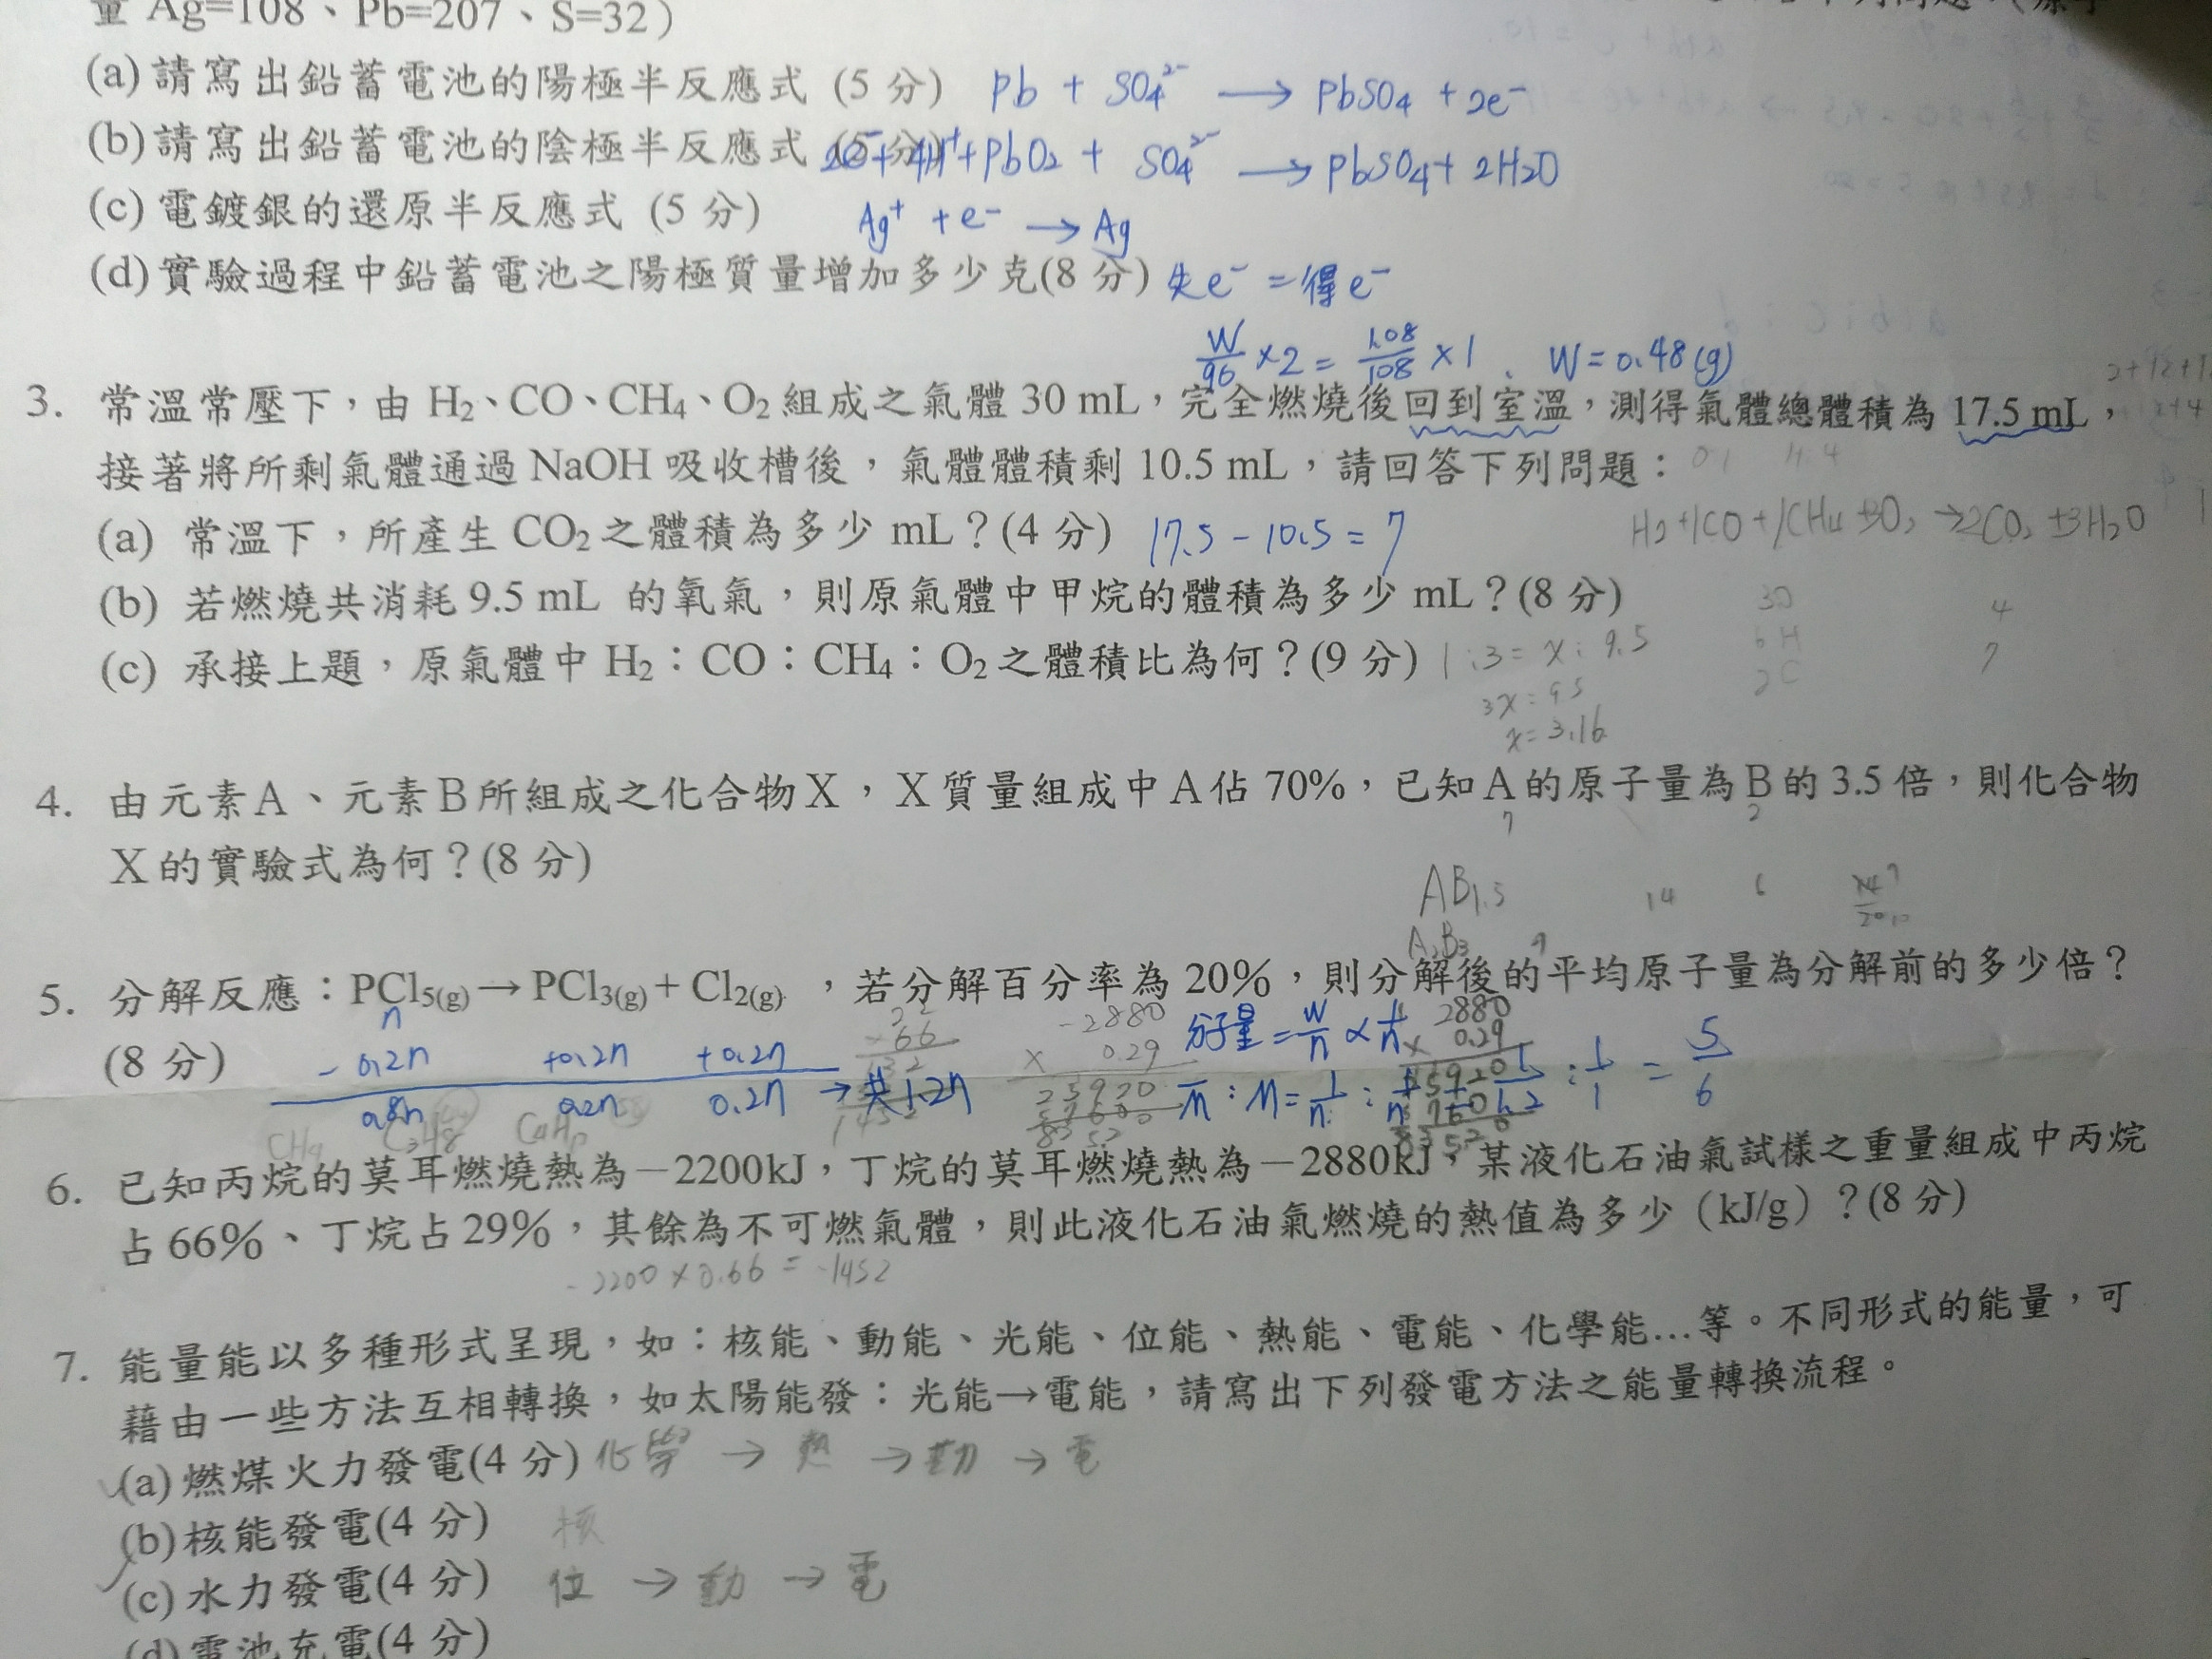 量 Ag=108、Pb=207、S=32）
(a) 請寫出鉛蓄電池的陽極半反應式 (5 分) Pb + SO4²⁻ → PbSO4 + 2e⁻
(b) 請寫出鉛蓄電池的陰極半反應式 (5 分) 2e⁻+ 4H⁺+PbO2 + SO4²⁻ → PbSO4+ 2H2O
(c) 電鍍銀的還原半反應式 (5 分) Ag⁺ + e⁻ → Ag
(d) 實驗過程中鉛蓄電池之陽極質量增加多少克(8 分) 失e⁻ = 得e⁻
W/96 ×2 = 1.08/108 ×1 . W = 0.48(g)
3. 常溫常壓下，由 H₂、CO、CH₄、O₂ 組成之氣體 30 mL，完全燃燒後回到室溫，測得氣體總體積為 17.5 mL，
接著將所剩氣體通過 NaOH 吸收槽後，氣體體積剩 10.5 mL，請回答下列問題：
H2+1CO+1CH4+3O2→2CO2+3H2O
(a) 常溫下，所產生 CO₂ 之體積為多少 mL？(4 分) 17.5－10.5＝7
(b) 若燃燒共消耗 9.5 mL 的氧氣，則原氣體中甲烷的體積為多少 mL？(8 分)
(c) 承接上題，原氣體中 H₂：CO：CH₄：O₂ 之體積比為何？(9 分) 1:3=x:9.5
3x=9.5
x=3.16
4. 由元素A、元素B所組成之化合物X，X質量組成中A佔 70%，已知A的原子量為B的 3.5 倍，則化合物
7 2
X的實驗式為何？(8 分)
AB1.5 14 6
A2B3
5. 分解反應：PCl₅(g)→PCl₃(g)＋Cl₂(g)，若分解百分率為 20%，則分解後的平均原子量為分解前的多少倍？
n
(8 分) －0.2n +0.2n +0.2n 分子量=W/n ∝ 1/n
0.8n 0.2n 0.2n → 共1.2n M̄ : M = 1/n : 1/n = 1/1.2 : 1/1 = 5/6
-2880 × 0.29
2880 × 0.29
CH4 C3H8 C4H10
6. 已知丙烷的莫耳燃燒熱為－2200kJ，丁烷的莫耳燃燒熱為－2880kJ，某液化石油氣試樣之重量組成中丙烷
占 66%、丁烷占 29%，其餘為不可燃氣體，則此液化石油氣燃燒的熱值為多少（kJ/g）？(8 分)
-2200×0.66=-1452
7. 能量能以多種形式呈現，如：核能、動能、光能、位能、熱能、電能、化學能…等。不同形式的能量，可
藉由一些方法互相轉換，如太陽能發：光能→電能，請寫出下列發電方法之能量轉換流程。
(a) 燃煤火力發電(4 分) 化學 → 熱 → 動 → 電
(b) 核能發電(4 分) 核
(c) 水力發電(4 分) 位 → 動 → 電
(d) 電池充電(4 分)